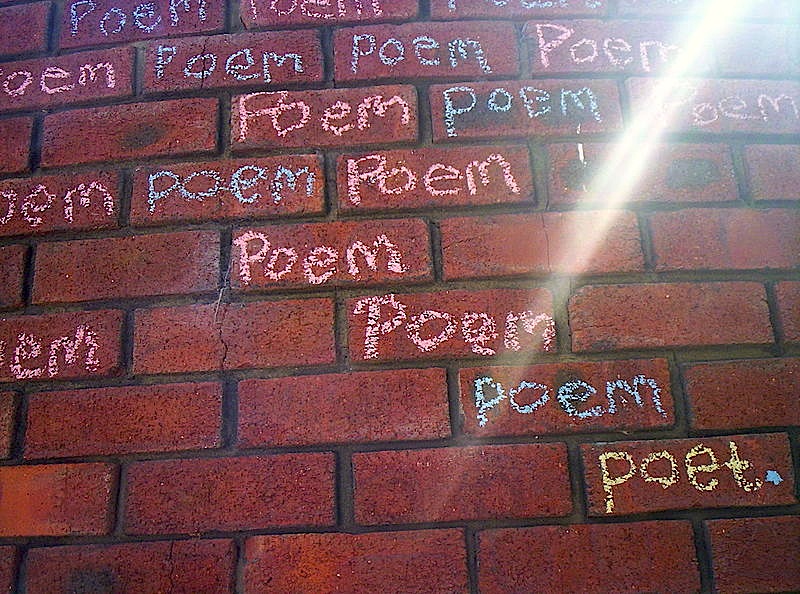 poem Poem
oem poem poem Poem
Poem poem Poem
oem poem Poem
Poem
oem Poem
poem
poet.